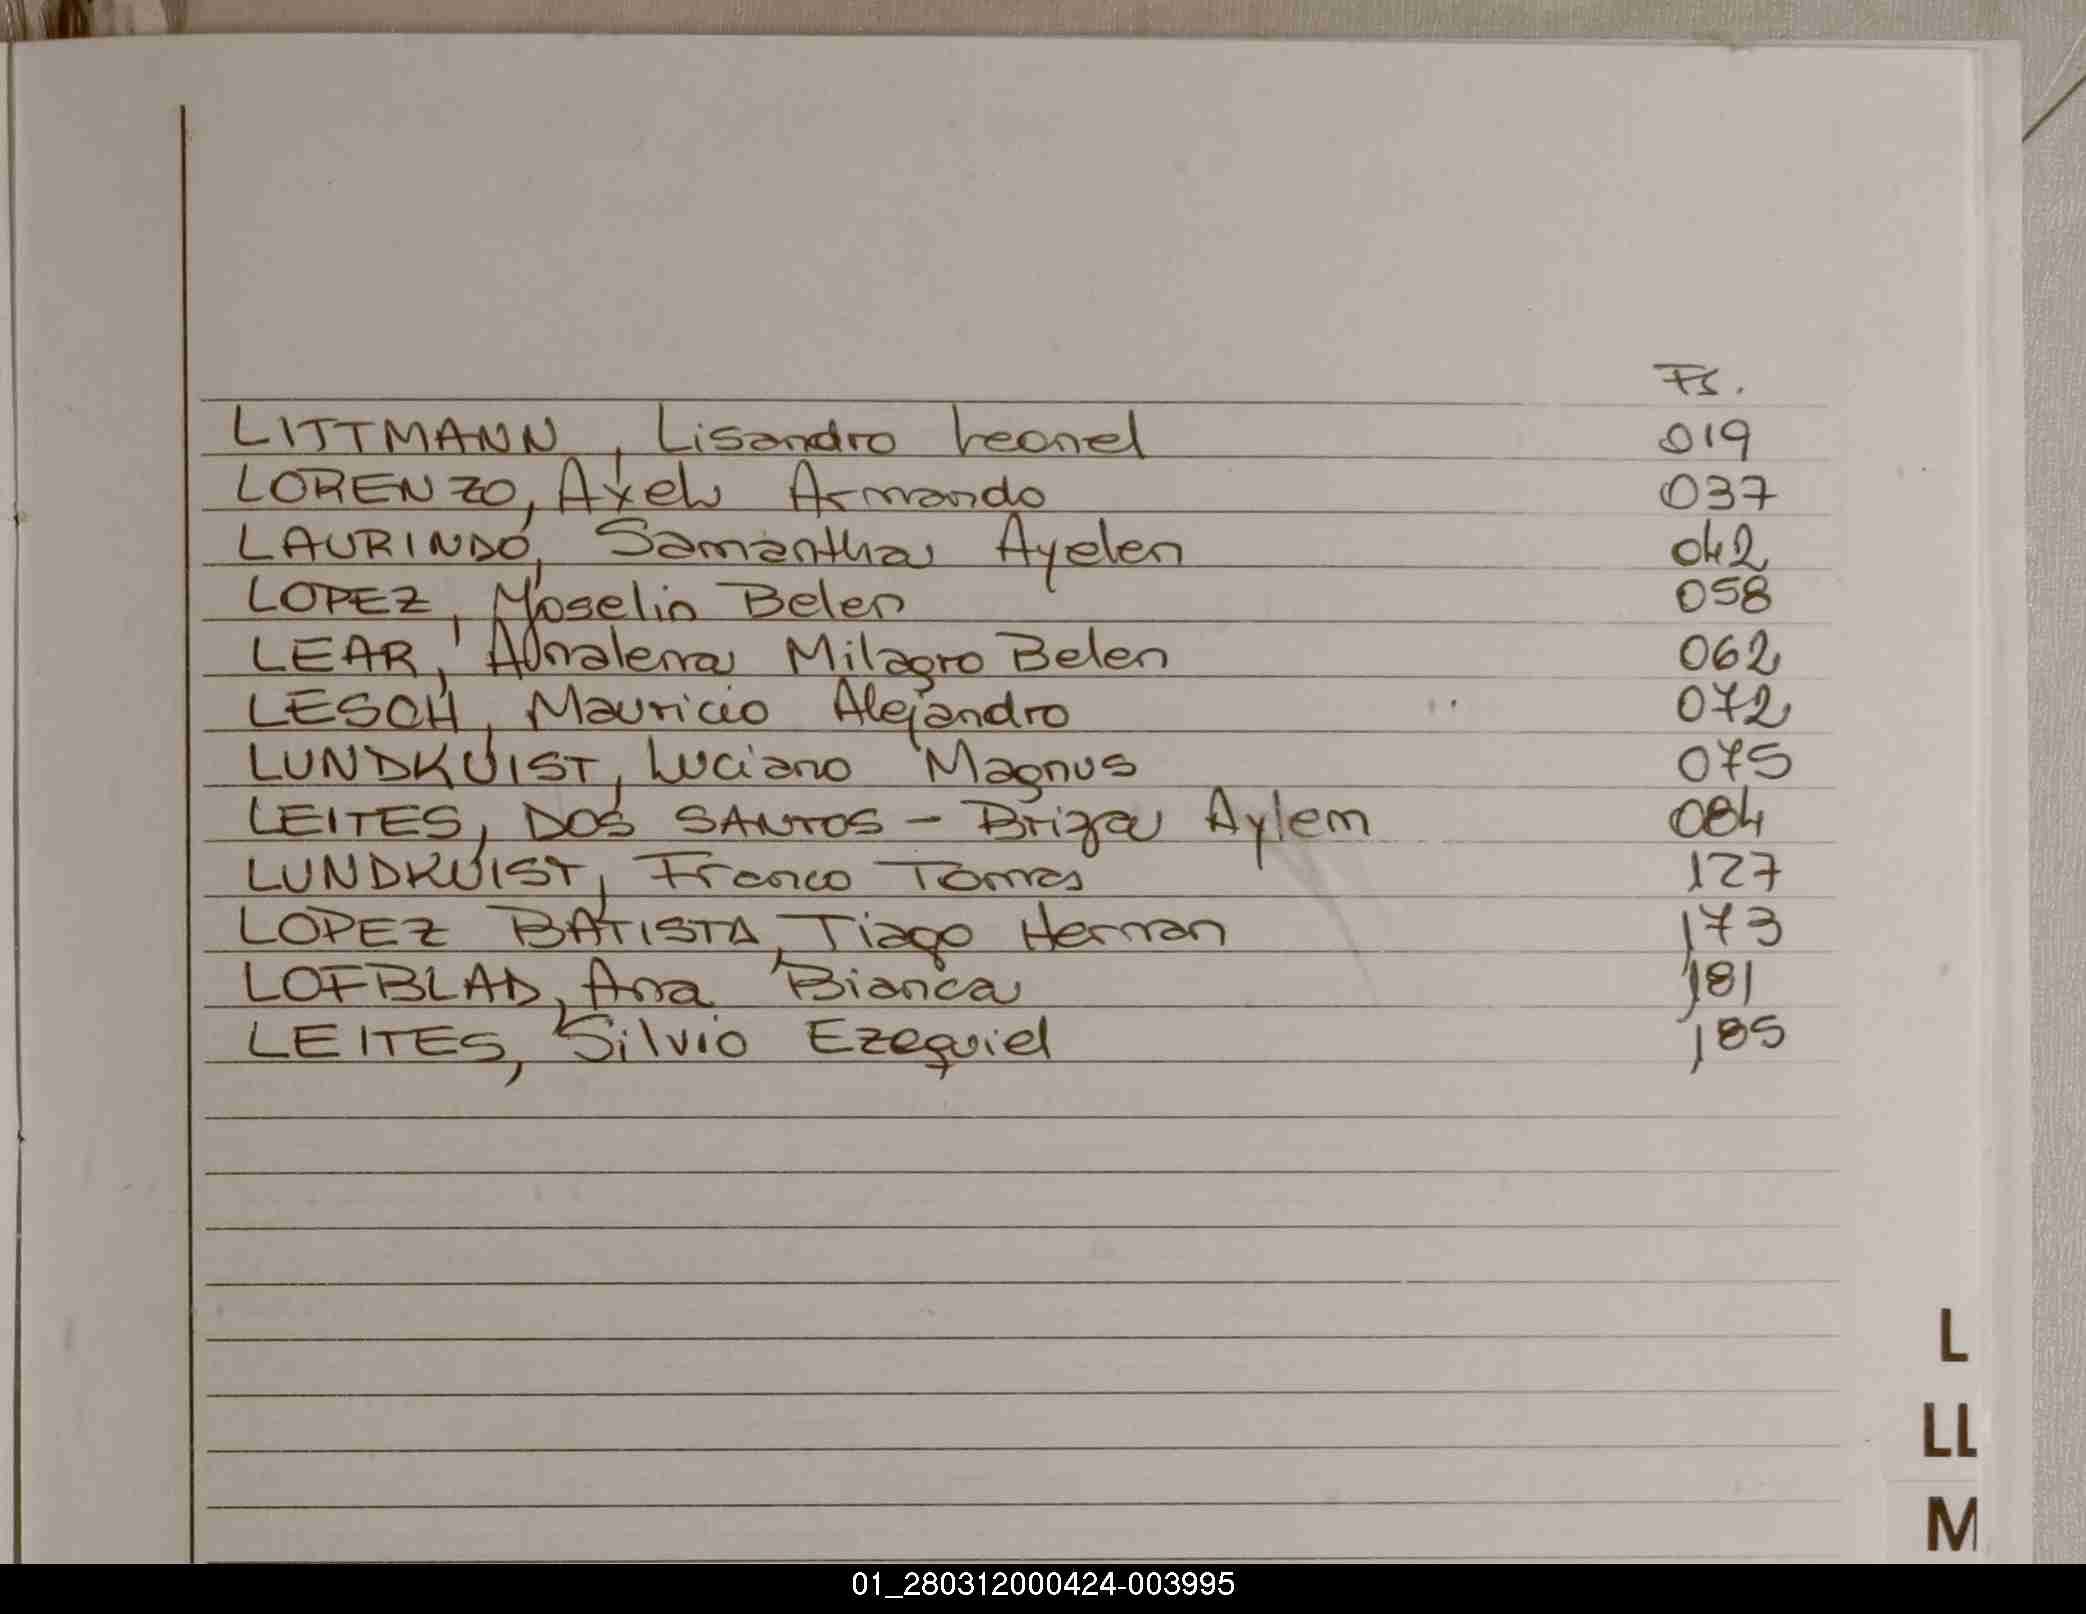 Fs.
LITTMANN, Lisandro Leonel 019
LORENZO, Axel Armando 037
LAURINDO, Samantha Ayelen 042
LOPEZ, Yoselin Belen 058
LEAR, Annalena Milagro Belen 062
LESCH, Mauricio Alejandro 072
LUNDKUIST, Luciano Magnus 075
LEITES, DOS SANTOS - Briza Aylem 084
LUNDKUIST, Franco Tomas 127
LOPEZ BATISTA, Tiago Hernan 173
LOFBLAD, Ana Bianca 181
LEITES, Silvio Ezequiel 185
L
LL
M
01_280312000424-003995